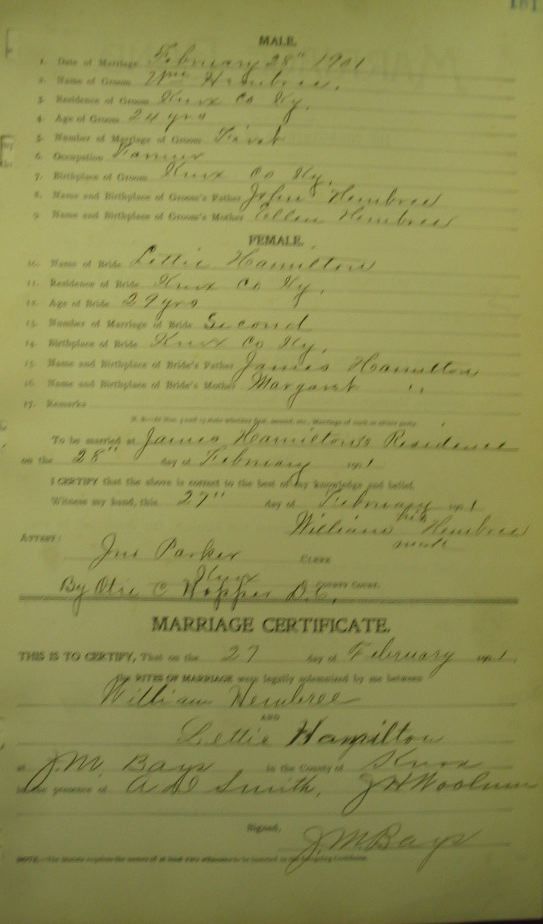 181
MALE.
1. Date of Marriage February 28" 1901
2. Name of Groom Wm Hembree.
3. Residence of Groom Knox Co Ky.
4. Age of Groom 24 yrs
5. Number of Marriage of Groom First
6. Occupation Farmer
7. Birthplace of Groom Knox Co Ky.
8. Name and Birthplace of Groom's Father John Hembree
9. Name and Birthplace of Groom's Mother Ellen Hembree
FEMALE.
10. Name of Bride Lettie Hamilton
11. Residence of Bride Knox Co Ky.
12. Age of Bride 29 yrs
13. Number of Marriage of Bride Second
14. Birthplace of Bride Knox Co Ky.
15. Name and Birthplace of Bride's Father James Hamilton
16. Name and Birthplace of Bride's Mother Margaret "
17. Remarks
To be married at James Hamilton's Residence
on the 28" day of February 1901
I CERTIFY that the above is correct to the best of my knowledge and belief.
Witness my hand, this 27" day of February 1901
William his Hembree
mark
ATTEST:
Jno Parker CLERK
Knox COUNTY COURT.
By C Hopper D.C.
MARRIAGE CERTIFICATE.
THIS IS TO CERTIFY, That on the 27 day of February 1901,
the RITES OF MARRIAGE were legally solemnized by me between
William Hembree
AND
Lettie Hamilton
at J.M. Bays in the County of Knox
in the presence of A D Smith, J H Woolum
Signed, J.M. Bays